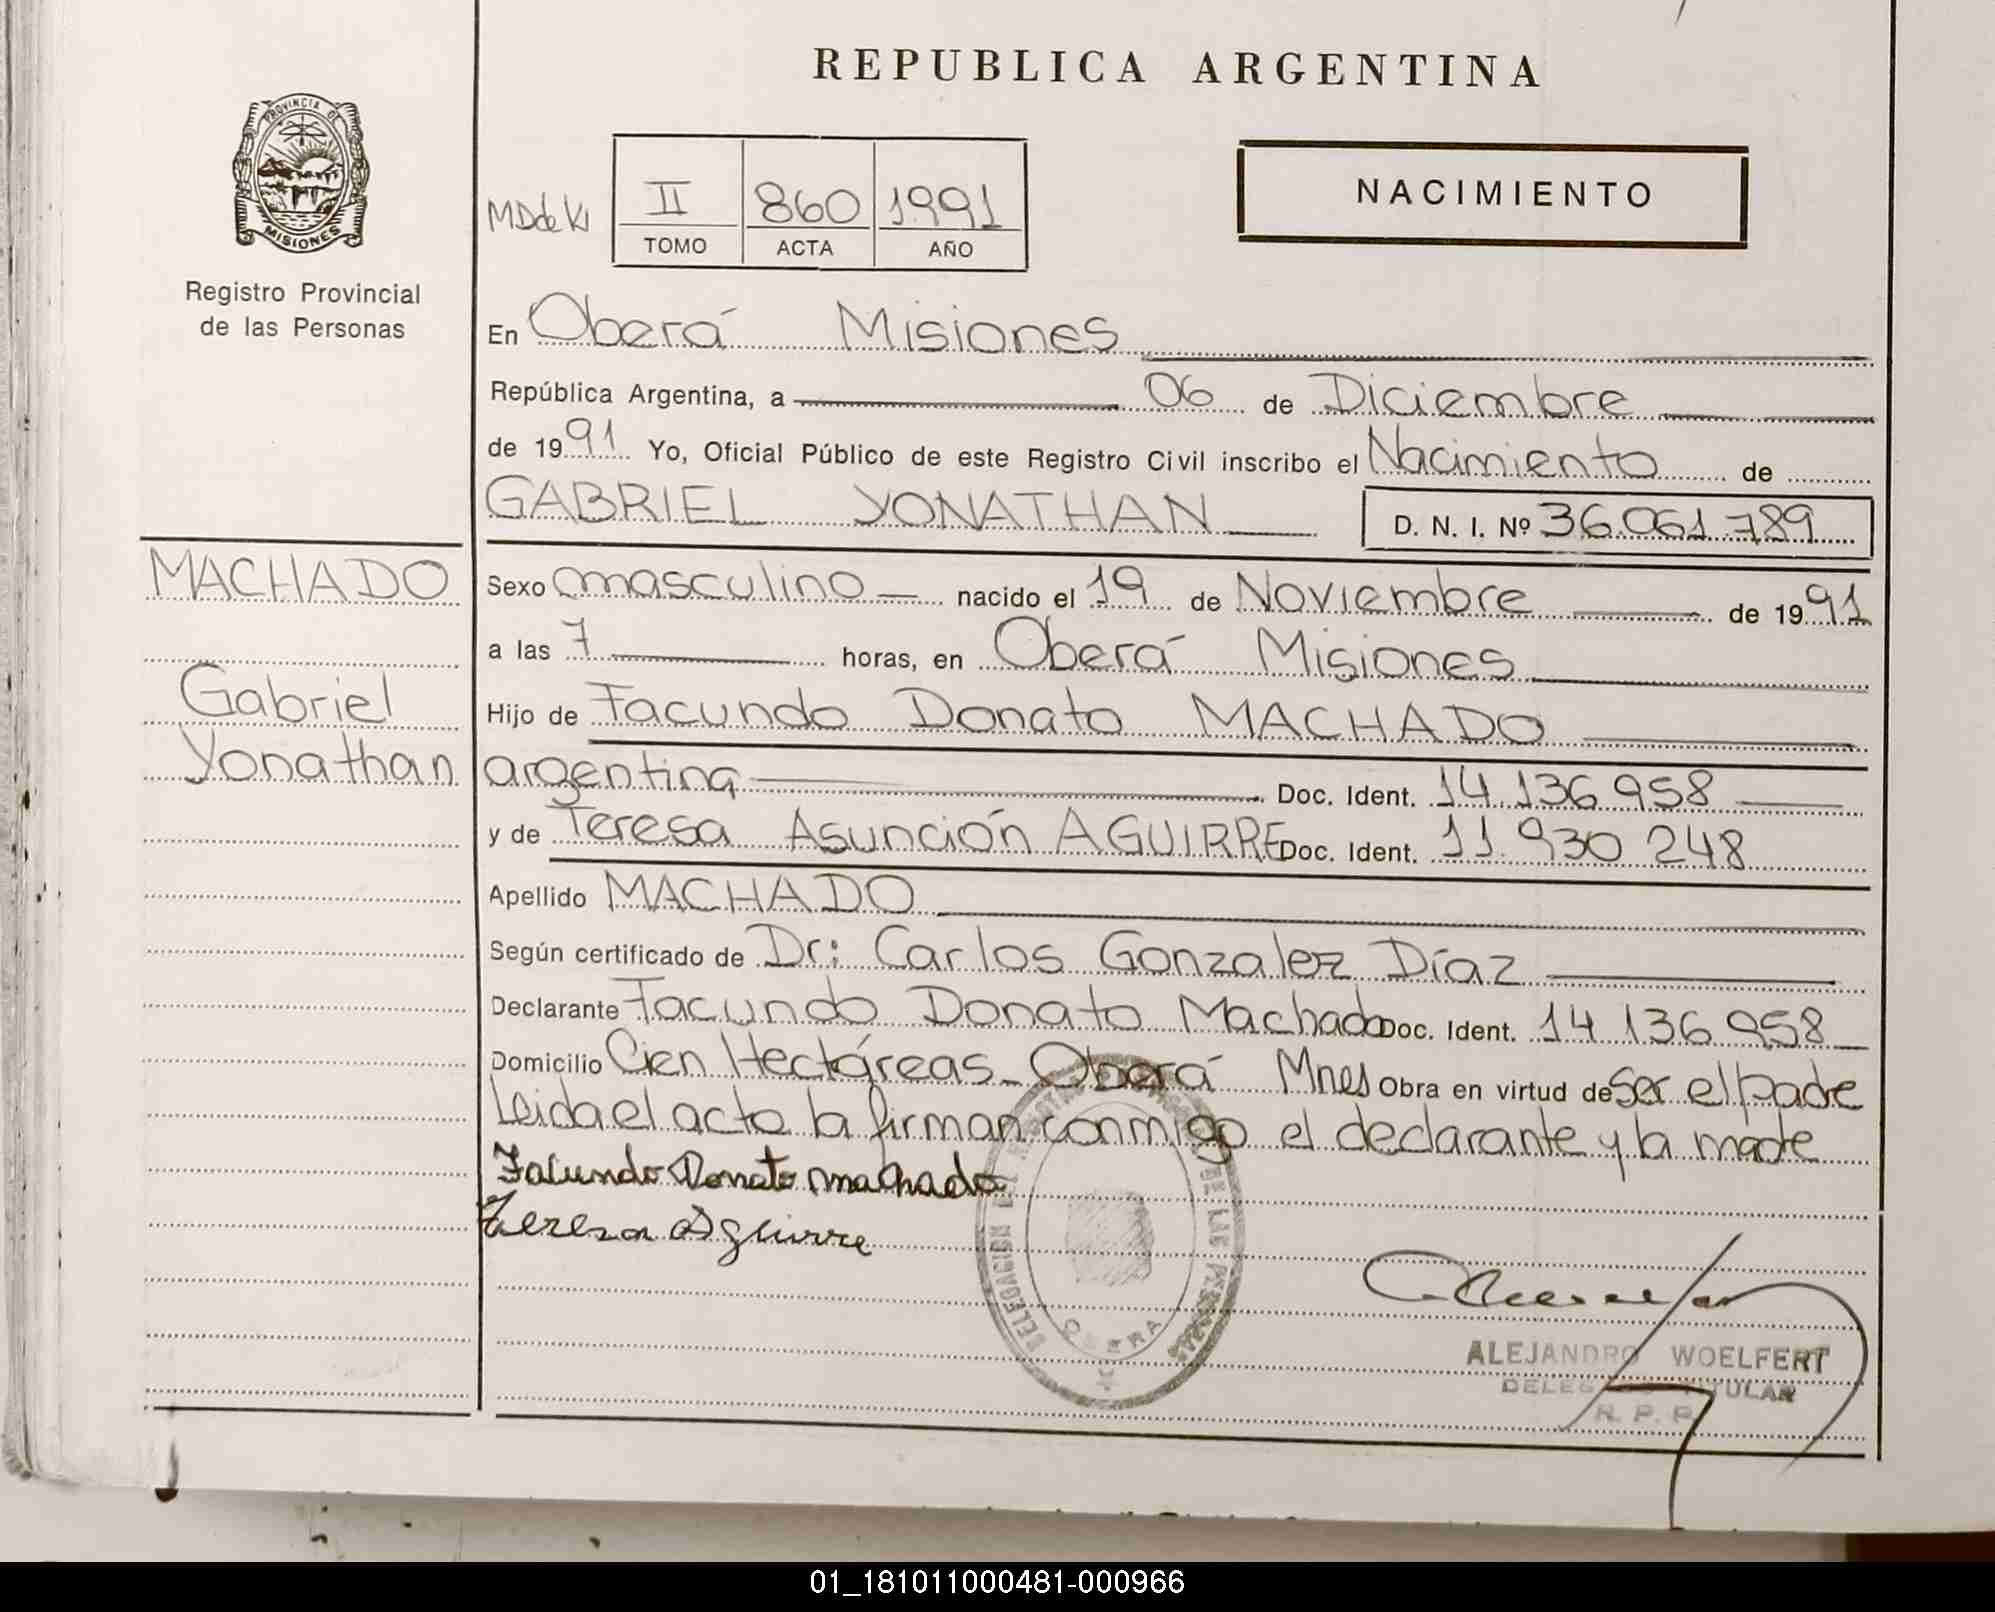 REPUBLICA ARGENTINA
PROVINCIA DE
MISIONES
Registro Provincial
de las Personas
II 860 1991
TOMO ACTA AÑO
NACIMIENTO
En Oberá Misiones
República Argentina, a 06 de Diciembre
de 1991 Yo, Oficial Público de este Registro Civil inscribo el Nacimiento de
GABRIEL YONATHAN D. N. I. Nº 36.061.789
MACHADO
Gabriel
Yonathan
Sexo masculino nacido el 19 de Noviembre de 1991
a las 7 horas, en Oberá Misiones
Hijo de Facundo Donato MACHADO
argentina Doc. Ident. 14.136.958
y de Teresa Asunción AGUIRRE Doc. Ident. 11.930 248
Apellido MACHADO
Según certificado de Dr: Carlos Gonzalez Díaz
Declarante Facundo Donato Machado Doc. Ident. 14.136.958
Domicilio Cien Hectáreas Oberá Mnes Obra en virtud de Ser el padre
Leida el acta la firman conmigo el declarante y la madre
Facundo Donato Machado
Teresa Aguirre
DELEGACION DEL REGISTRO DE LAS PERSONAS
OBERA
ALEJANDRO WOELFERT
DELEGADO TITULAR
R. P. P.
01_181011000481-000966